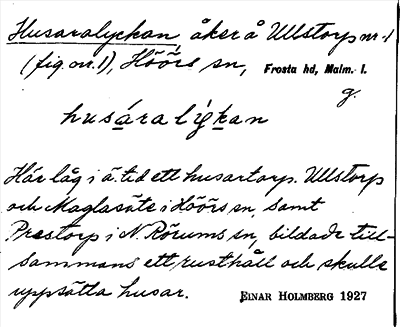 Husaralyckan åker å Ullstorp nr 1
(fig. nr. 1), Höörs sn, Frosta hd, Malm. l.
g.
husáralýkan
Här låg i ä. tid ett husartorp. Ullstorp
och Maglasäte i Höörs sn, samt
Prestorp i N. Rörums sn, bildade till-
sammans ett rusthåll och skulle
uppsätta husar.
EINAR HOLMBERG 1927